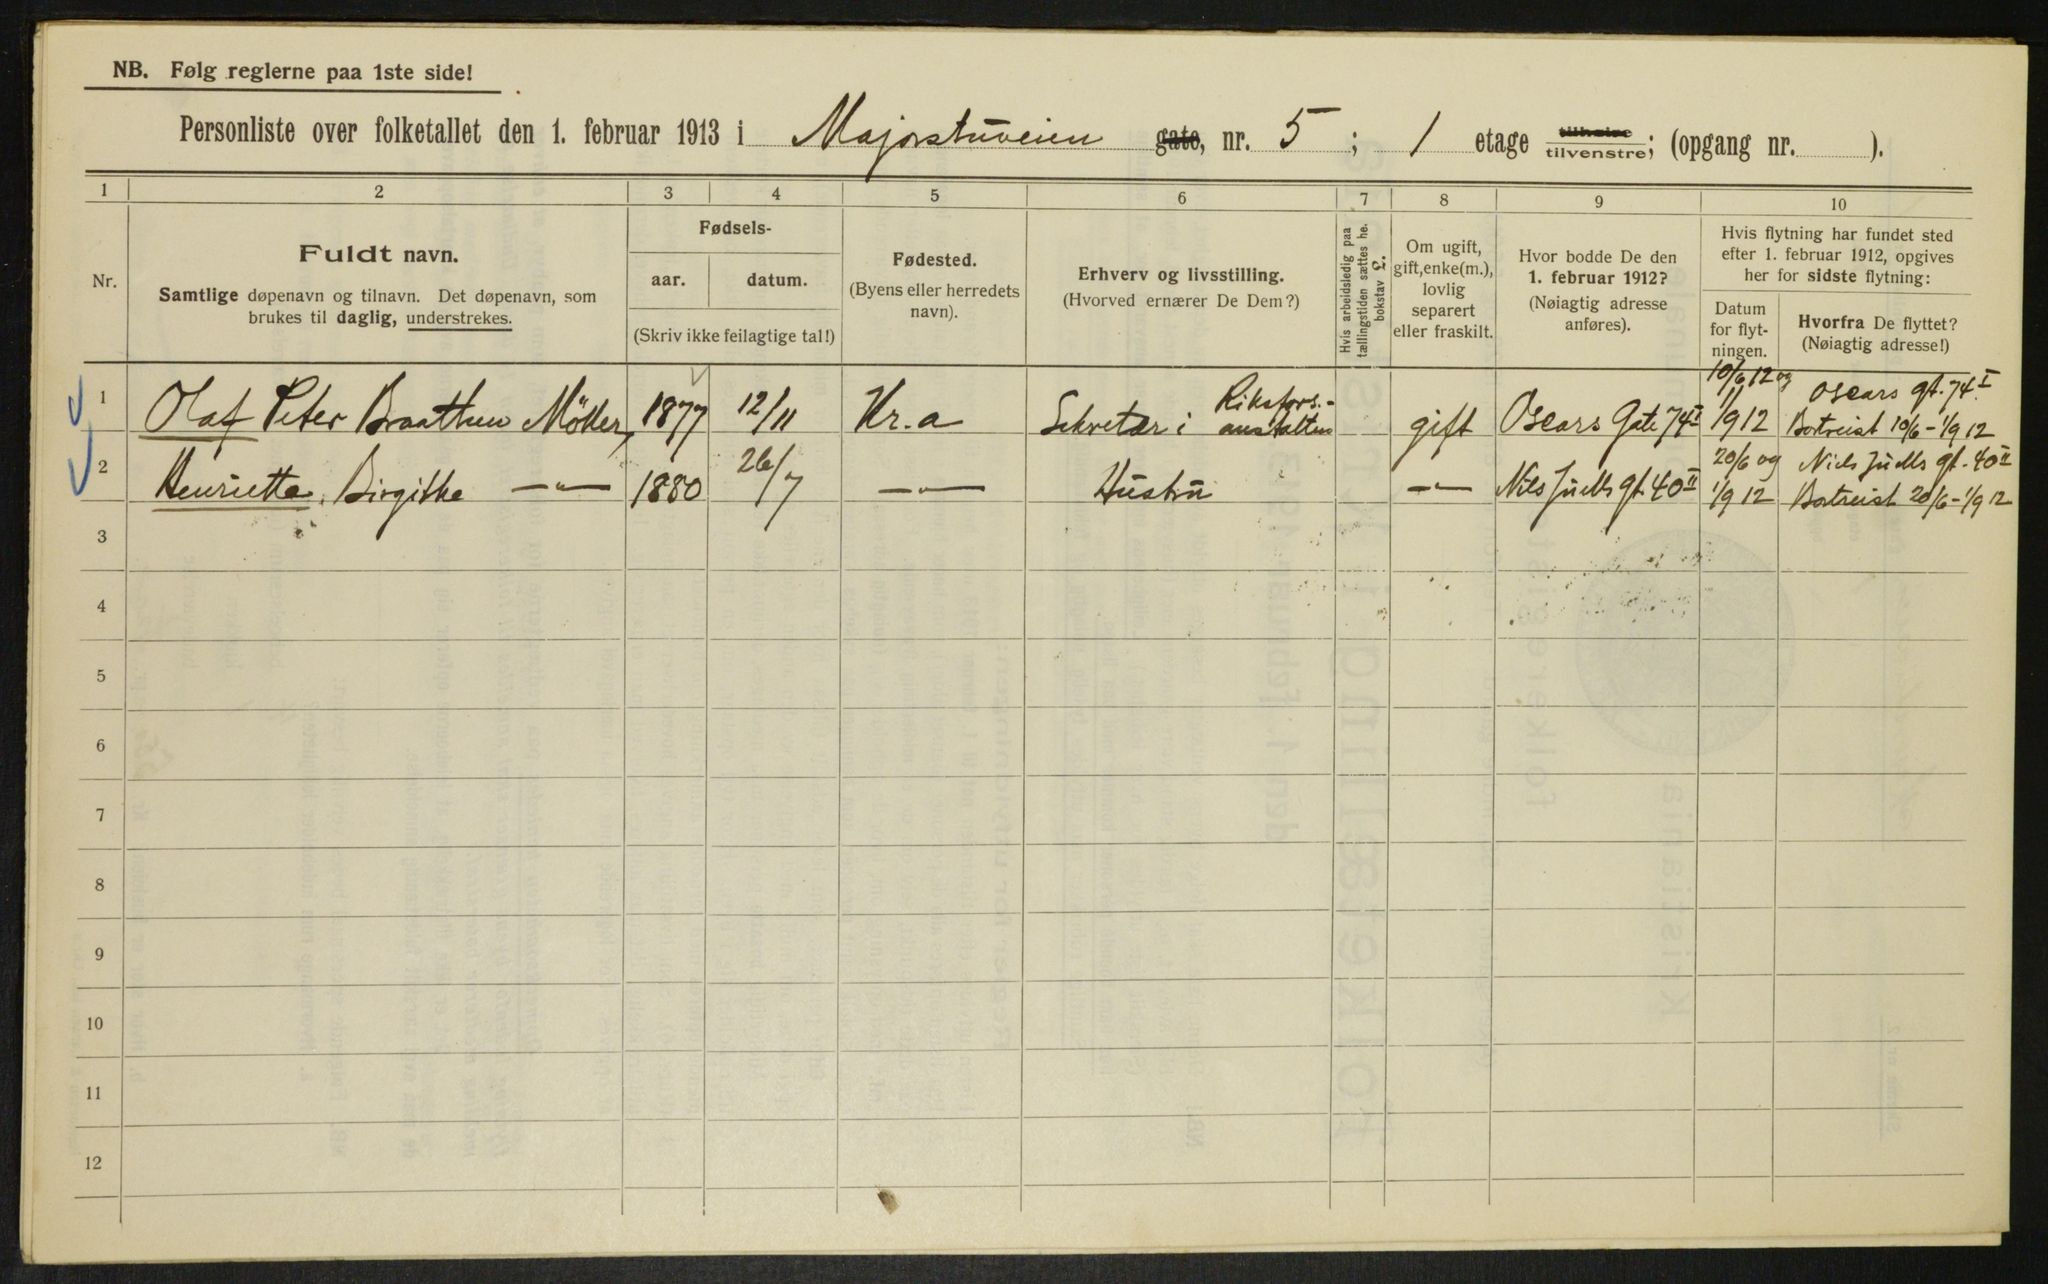 NB. Følg reglerne paa 1ste side!
Personliste over folketallet den 1. februar 1913 i Majorstuveien gate, nr. 5 ; 1 etage tilhøire tilvenstre; (opgang nr. ).
1 2 3 4 5 6 7 8 9 10
Nr.
Fuldt navn.
Samtlige døpenavn og tilnavn. Det døpenavn, som
brukes til daglig, understrekes.
Fødsels-
aar. datum.
(Skriv ikke feilagtige tal!)
Fødested.
(Byens eller herredets
navn).
Erhverv og livsstilling.
(Hvorved ernærer De Dem?)
Hvis arbeidsledig paa
tællingstiden sættes he.
bokstav L.
Om ugift,
gift, enke(m.),
lovlig
separert
eller fraskilt.
Hvor bodde De den
1. februar 1912?
(Nøiagtig adresse
anføres).
Hvis flytning har fundet sted
efter 1. februar 1912, opgives
her for sidste flytning:
Datum
for flyt-
ningen.
Hvorfra De flyttet?
(Nøiagtig adresse!)
1 Olaf Peter Braathen Möller, 1877 12/11 Kr.a Sekretær i Riksfors.-anstalten gift Oscars Gate 74 I 10/6 12 og 1/9 12 Oscars gt. 74 I. Bortreist 10/6 - 1/9 12
2 Henriette Birgithe —„— 1880 26/7 —„— Hustru —„— Nils Juells gt 40 II 20/6 og 1/9 12 Niels Juells gt. 40 II Bortreist 20/6 - 1/9 12
3
4
5
6
7
8
9
10
11
12